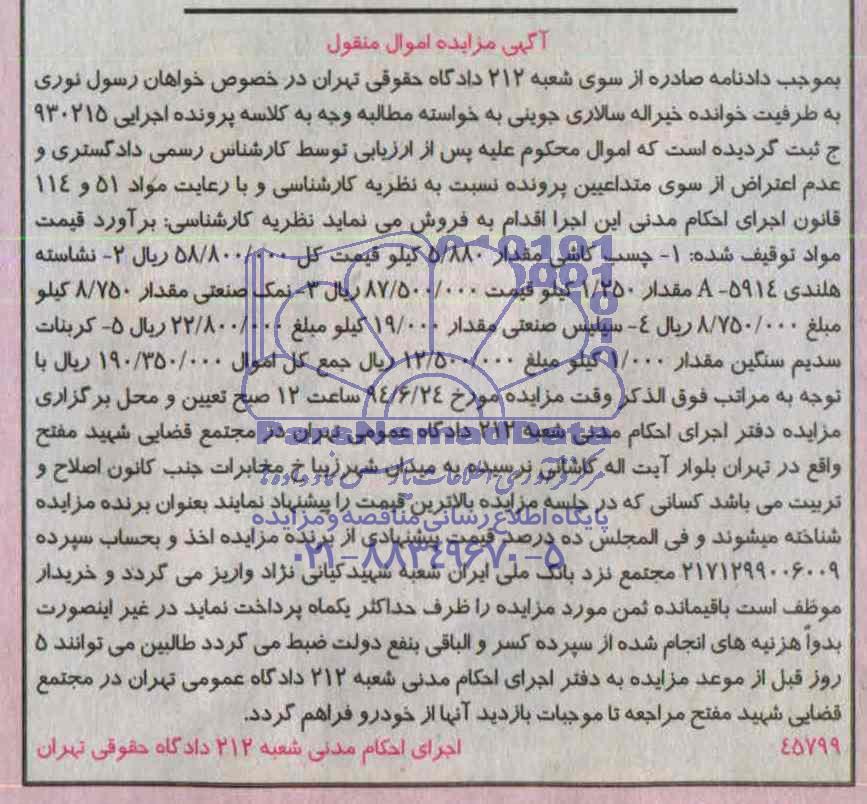 آگهی مزایده اموال منقول
بموجب دادنامه صادره از سوی شعبه ۲۱۲ دادگاه حقوقی تهران در خصوص خواهان رسول نوری
به طرفیت خوانده خیراله سالاری جوینی به خواسته مطالبه وجه به کلاسه پرونده اجرایی ۹۳۰۲۱۵
ج ثبت گردیده است که اموال محکوم علیه پس از ارزیابی توسط کارشناس رسمی دادگستری و
عدم اعتراض از سوی متداعیین پرونده نسبت به نظریه کارشناسی و با رعایت مواد ۵۱ و ۱۱٤
قانون اجرای احکام مدنی این اجرا اقدام به فروش می نماید نظریه کارشناسی: برآورد قیمت
مواد توقیف شده: ۱- چسب کاشی مقدار ۵/۸۸۰ کیلو قیمت کل ۵۸/۸۰۰/۰۰۰ ریال ۲- نشاسته
هلندی A -۵۹۱٤ مقدار ۱/۲۵۰ کیلو قیمت ۸۷/۵۰۰/۰۰۰ ریال ۳- نمک صنعتی مقدار ۸/۷۵۰ کیلو
مبلغ ۸/۷۵۰/۰۰۰ ریال ٤- سیلیس صنعتی مقدار ۱۹/۰۰۰ کیلو مبلغ ۲۲/۸۰۰/۰۰۰ ریال ۵- کربنات
سدیم سنگین مقدار ۱/۰۰۰ کیلو مبلغ ۱۲/۵۰۰/۰۰۰ ریال جمع کل اموال ۱۹۰/۳۵۰/۰۰۰ ریال با
توجه به مراتب فوق الذکر وقت مزایده مورخ ۹٤/۶/۲٤ ساعت ۱۲ صبح تعیین و محل برگزاری
مزایده دفتر اجرای احکام مدنی شعبه ۲۱۲ دادگاه عمومی تهران در مجتمع قضایی شهید مفتح
واقع در تهران بلوار آیت اله کاشانی نرسیده به میدان شهرزیبا خ مخابرات جنب کانون اصلاح و
تربیت می باشد کسانی که در جلسه مزایده بالاترین قیمت را پیشنهاد نمایند بعنوان برنده مزایده
شناخته میشوند و فی المجلس ده درصد قیمت پیشنهادی از برنده مزایده اخذ و بحساب سپرده
۲۱۷۱۲۹۹۰۰۶۰۰۹ مجتمع نزد بانک ملی ایران شعبه شهیدکیانی نژاد واریز می گردد و خریدار
موظف است باقیمانده ثمن مورد مزایده را ظرف حداکثر یکماه پرداخت نماید در غیر اینصورت
بدواً هزنیه های انجام شده از سپرده کسر و الباقی بنفع دولت ضبط می گردد طالبین می توانند ۵
روز قبل از موعد مزایده به دفتر اجرای احکام مدنی شعبه ۲۱۲ دادگاه عمومی تهران در مجتمع
قضایی شهید مفتح مراجعه تا موجبات بازدید آنها از خودرو فراهم گردد.
٤۵۷۹۹ اجرای احکام مدنی شعبه ۲۱۲ دادگاه حقوقی تهران
ParsNamadData
پایگاه اطلاع رسانی مناقصه و مزایده
۰۲۱-۸۸۳٤۹۶۷۰-۵